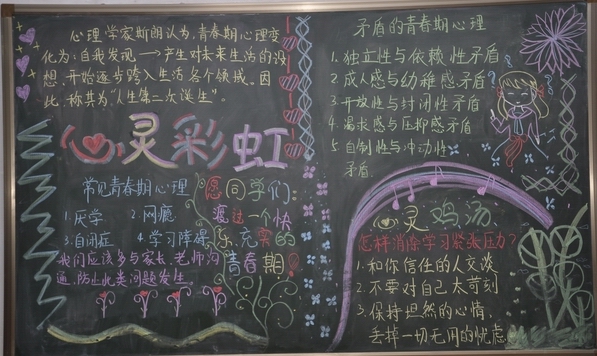 心理学家斯朗认为,青春期心理变
化为:自我发现→产生对未来生活的设
想,开始逐步跨入生活各个领域。因
此,称其为“人生第二次诞生”。
心灵彩虹
常见青春期心理
1.厌学 2.网瘾
3.自闭症 4.学习障碍
我们应该多与家长、老师沟
通,防止此类问题发生。
愿同学们
渡过一个快
乐、充实的
青春期!
矛盾的青春期心理
1.独立性与依赖性矛盾
2.成人感与幼稚感矛盾
3.开放性与封闭性矛盾
4.渴求感与压抑感矛盾
5.自制性与冲动性
矛盾
心灵鸡汤
怎样消除学习紧张压力?
1.和你信任的人交谈
2.不要对自己太苛刻
3.保持坦然的心情,
丢掉一切无网的忧虑